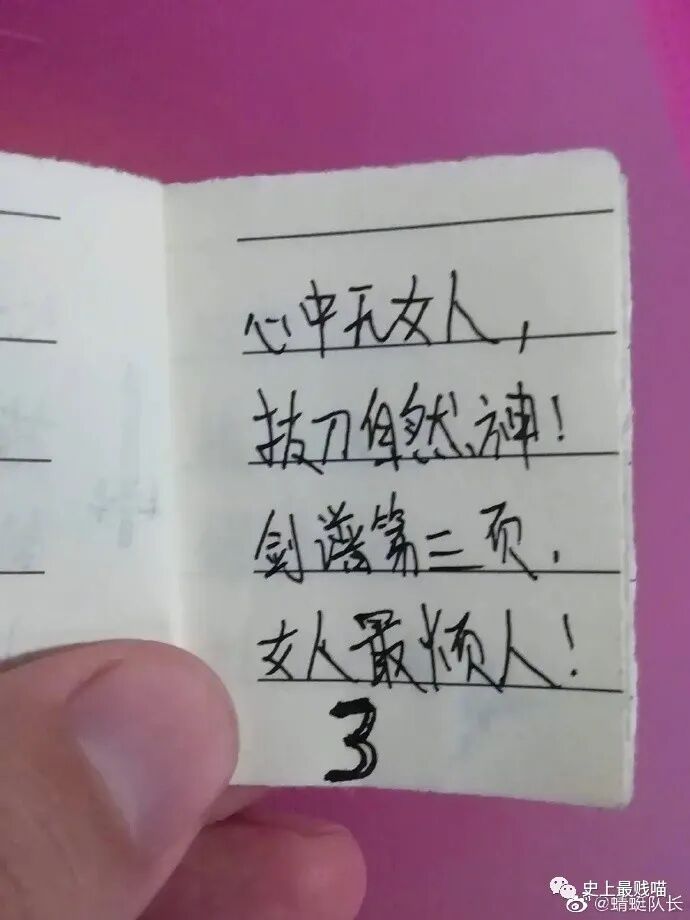 心中无女人，
拔刀自然神！
剑谱第三页．
女人最烦人！
3
史上最贱喵
@蜻蜓队长